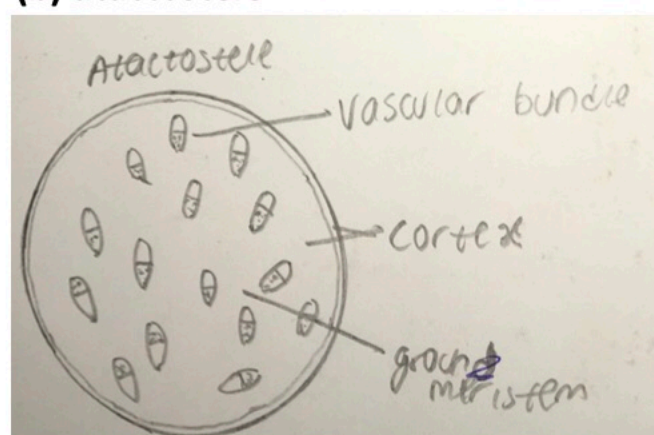 Atactostele
Vascular bundle
cortex
ground
meristem